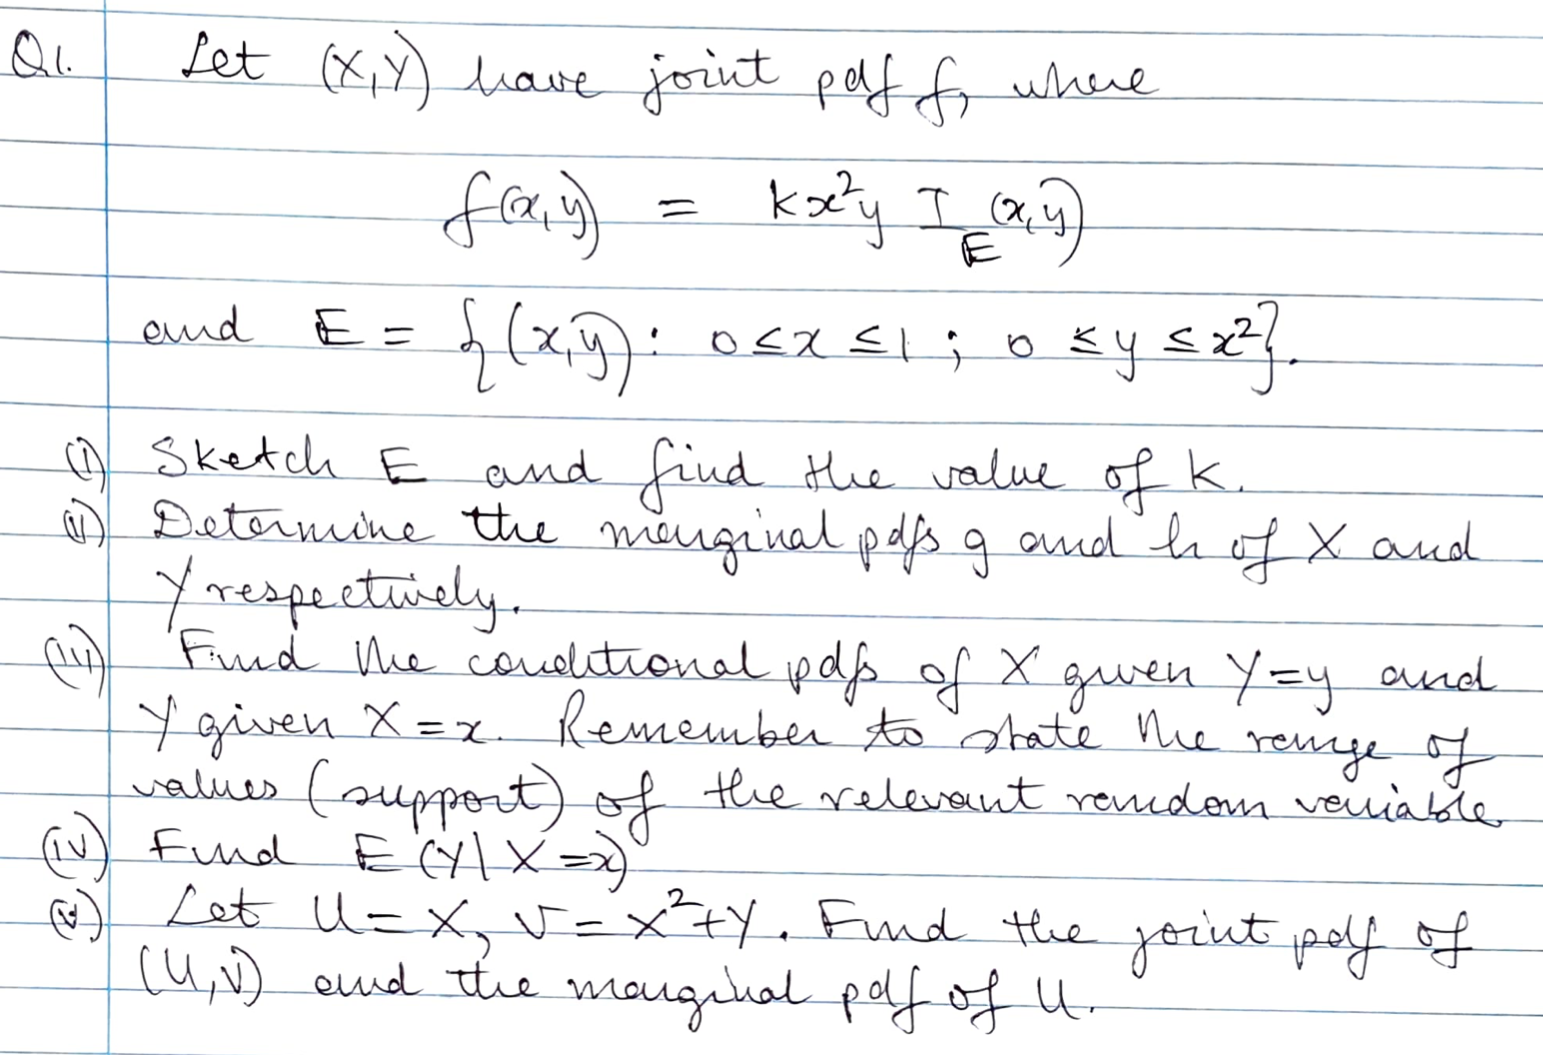 Q1. Let (X,Y) have joint pdf f, where
f(x,y) = kx²y I_E(x,y)
and E = {(x,y): 0≤x≤1; 0≤y≤x²}.
(i) Sketch E and find the value of k.
(ii) Determine the marginal pdfs g and h of X and
Y respectively.
(iii) Find the conditional pdfs of X given Y=y and
Y given X=x. Remember to state the range of
values (support) of the relevant random variable.
(iv) Find E(Y|X=x)
(v) Let U=X, V=X²+Y. Find the joint pdf of
(U,V) and the marginal pdf of U.